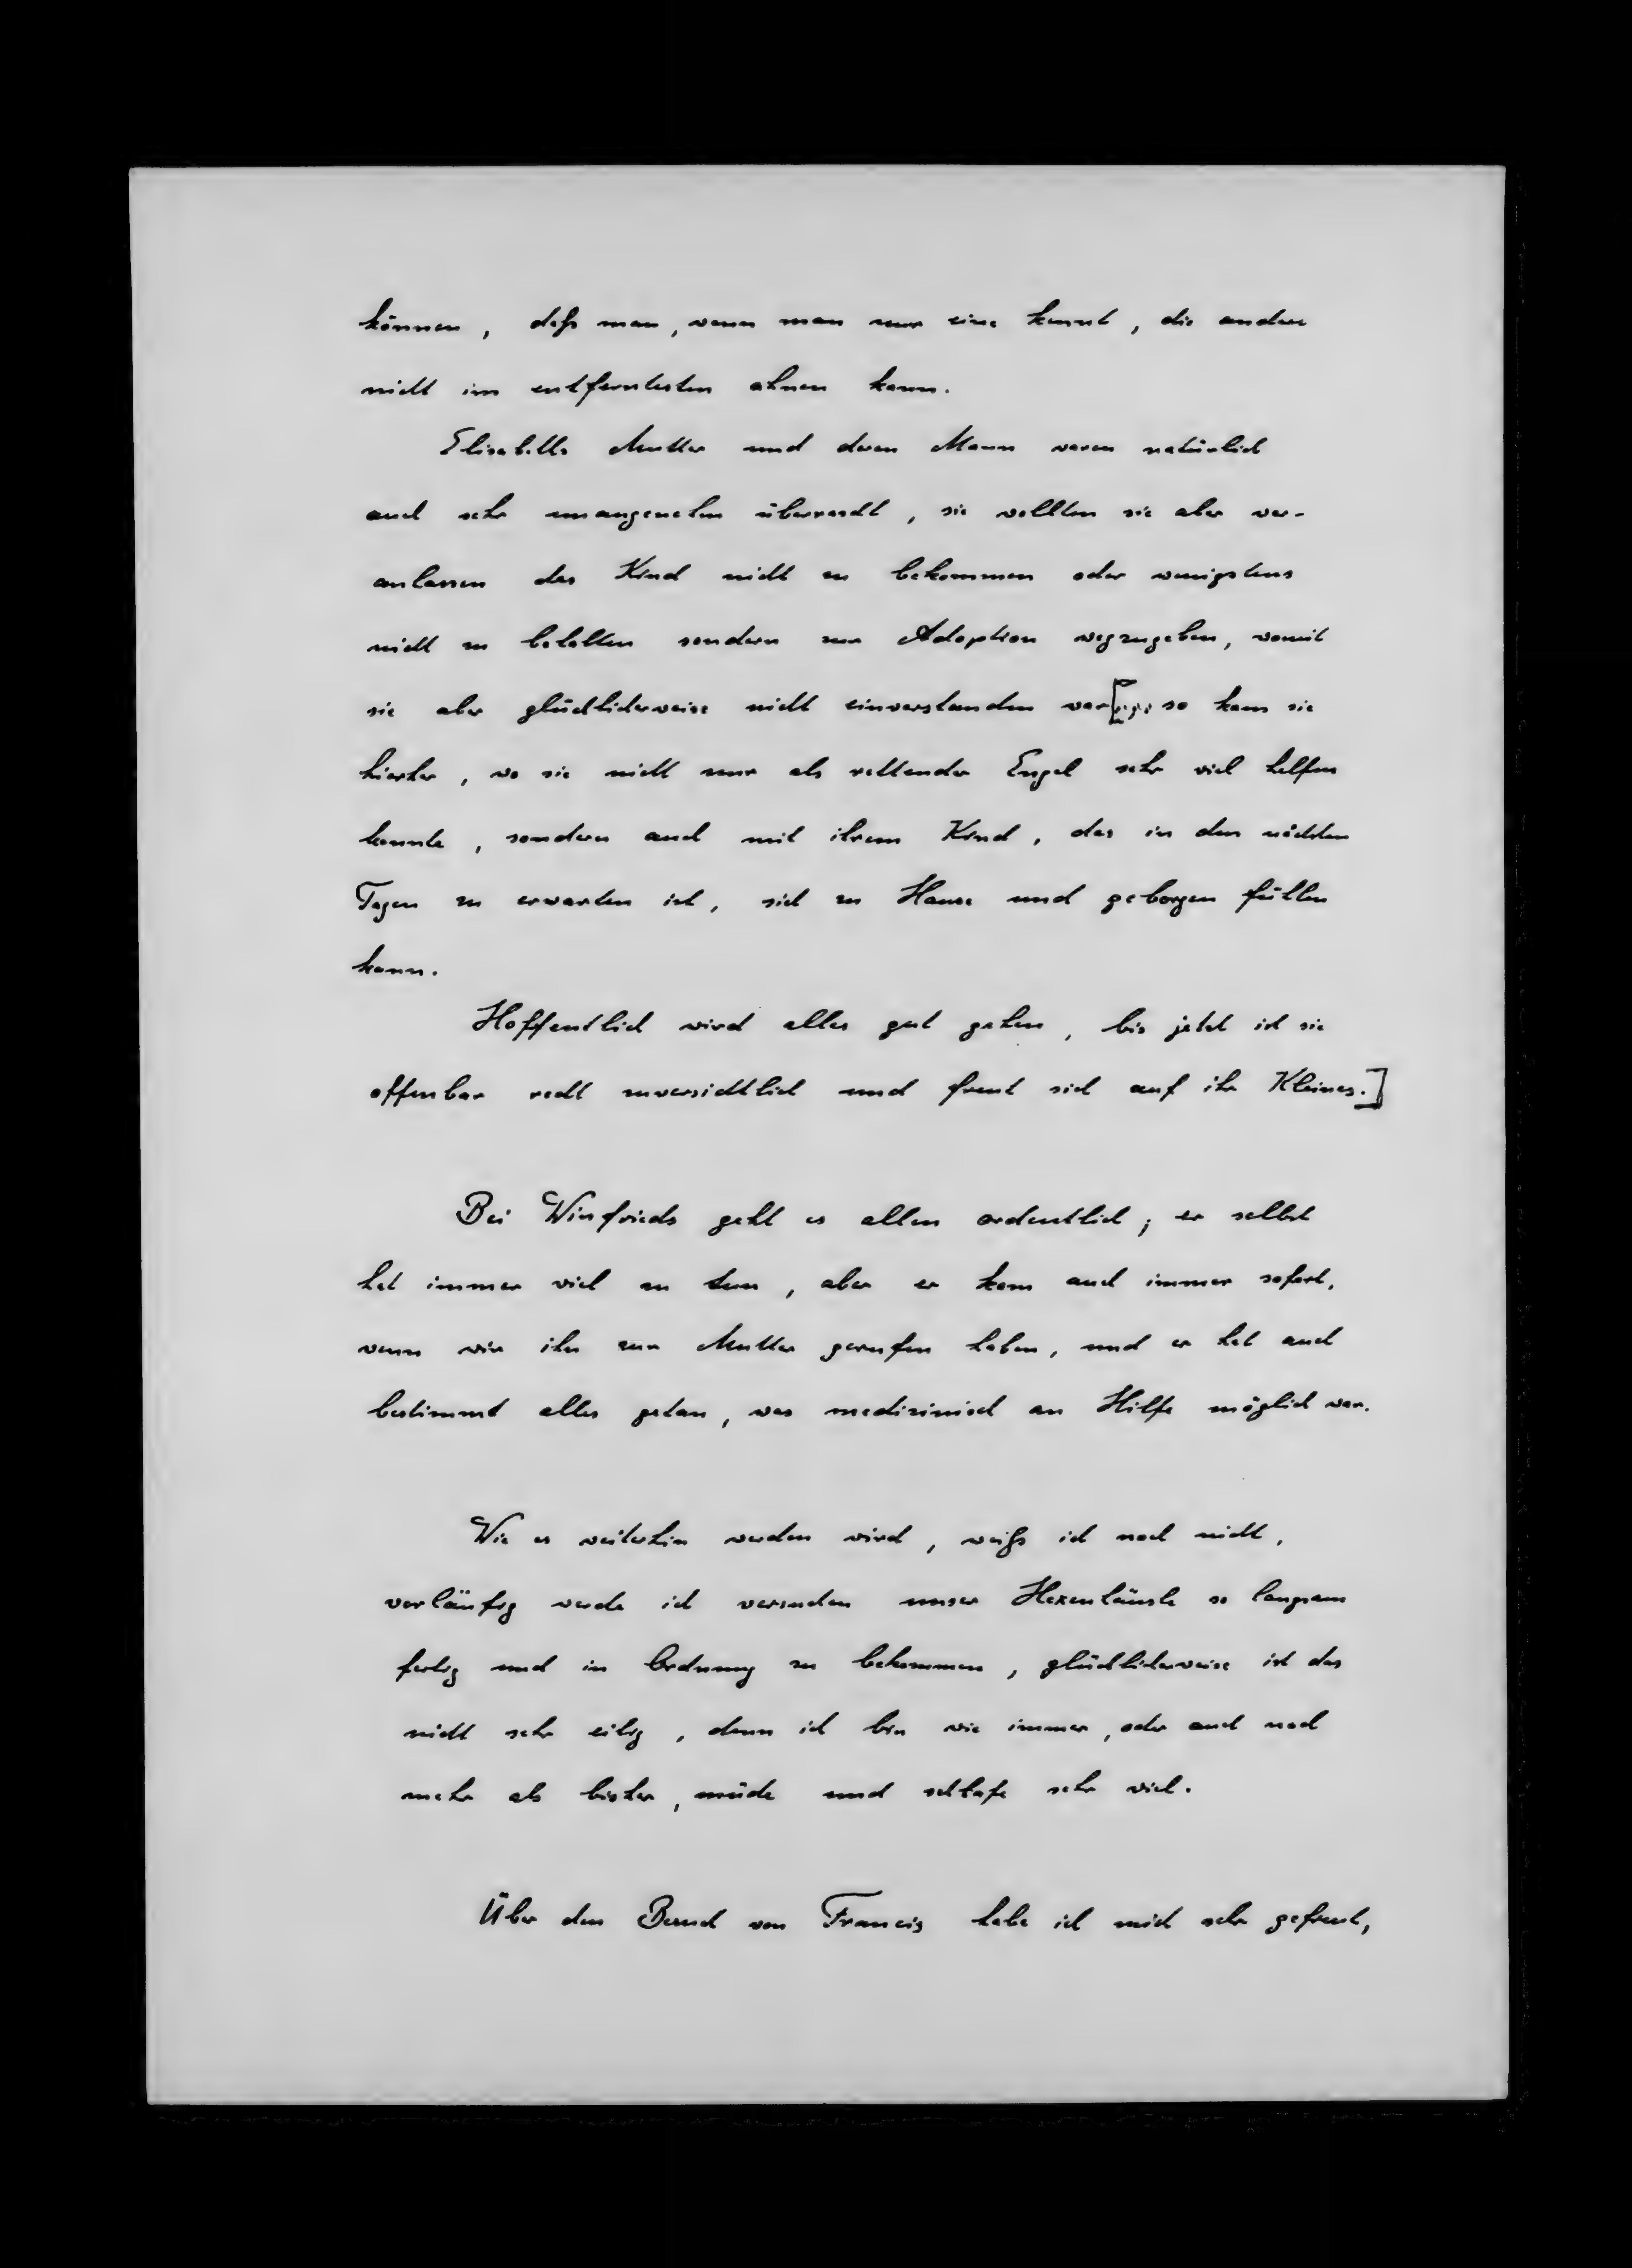 können, daß man, wenn man nur eine kennt, die andere
nicht im entferntesten ahnen kann.
Elisabeths Mutter und deren Mann waren natürlich
auch sehr unangenehm überrascht, sie wollten sie aber ver-
anlassen das Kind nicht zu bekommen oder wenigstens
nicht zu behalten sondern zur Adoption wegzugeben, womit
sie aber glücklicherweise nicht einverstanden war[ so kam sie
hierher, wo sie nicht nur als rettender Engel sehr viel helfen
konnte, sondern auch mit ihrem Kind, das in den nächsten
Tagen zu erwarten ist, sich zu Hause und geborgen fühlen
kann.
Hoffentlich wird alles gut gehen, bis jetzt ist sie
offenbar recht zuversichtlich und freut sich auf ihr Kleines.]
Bei Winfrieds geht es allen ordentlich; er selbst
hat immer viel zu tun, aber er kam auch immer sofort,
wenn wir ihn zur Mutter gerufen haben, und er hat auch
bestimmt alles getan, was medizinisch an Hilfe möglich war.
Wie es weiterhin werden wird, weiß ich noch nicht,
vorläufig werde ich versuchen unser Hexenhäusle so langsam
fertig und in Ordnung zu bekommen, glücklicherweise ist das
nicht sehr eilig, denn ich bin wie immer, oder auch noch
mehr als bisher, müde und schlafe sehr viel.
Über den Besuch von Francis habe ich mich sehr gefreut,